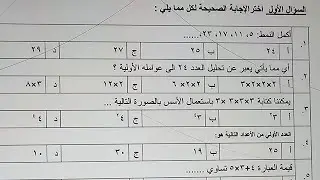 السؤال الأول اختر الإجابة الصحيحة لكل مما يلي :
١. أكمل النمط: ٥، ١١، ١٧، ٢٣، .......
أ ٢٤ ب ٢٥ ج ٢٧ د ٢٩
أي مما يأتي يعبر عن تحليل العدد ٢٤ الى عوامله الأولية ؟
أ ٣×٢×٢×٢ ب ٦×٢×٢ ج ١٢×٢ د ٨×٣
يمكننا كتابة ٣×٣×٣×٣ باستعمال الأسس بالصورة التالية ...
العدد الأولي من الأعداد التالية هو:
أ ٢٥ ب ١٩ ج ٣٠ د ١٠
قيمة العبارة ٤+٣×٥ تساوي .......